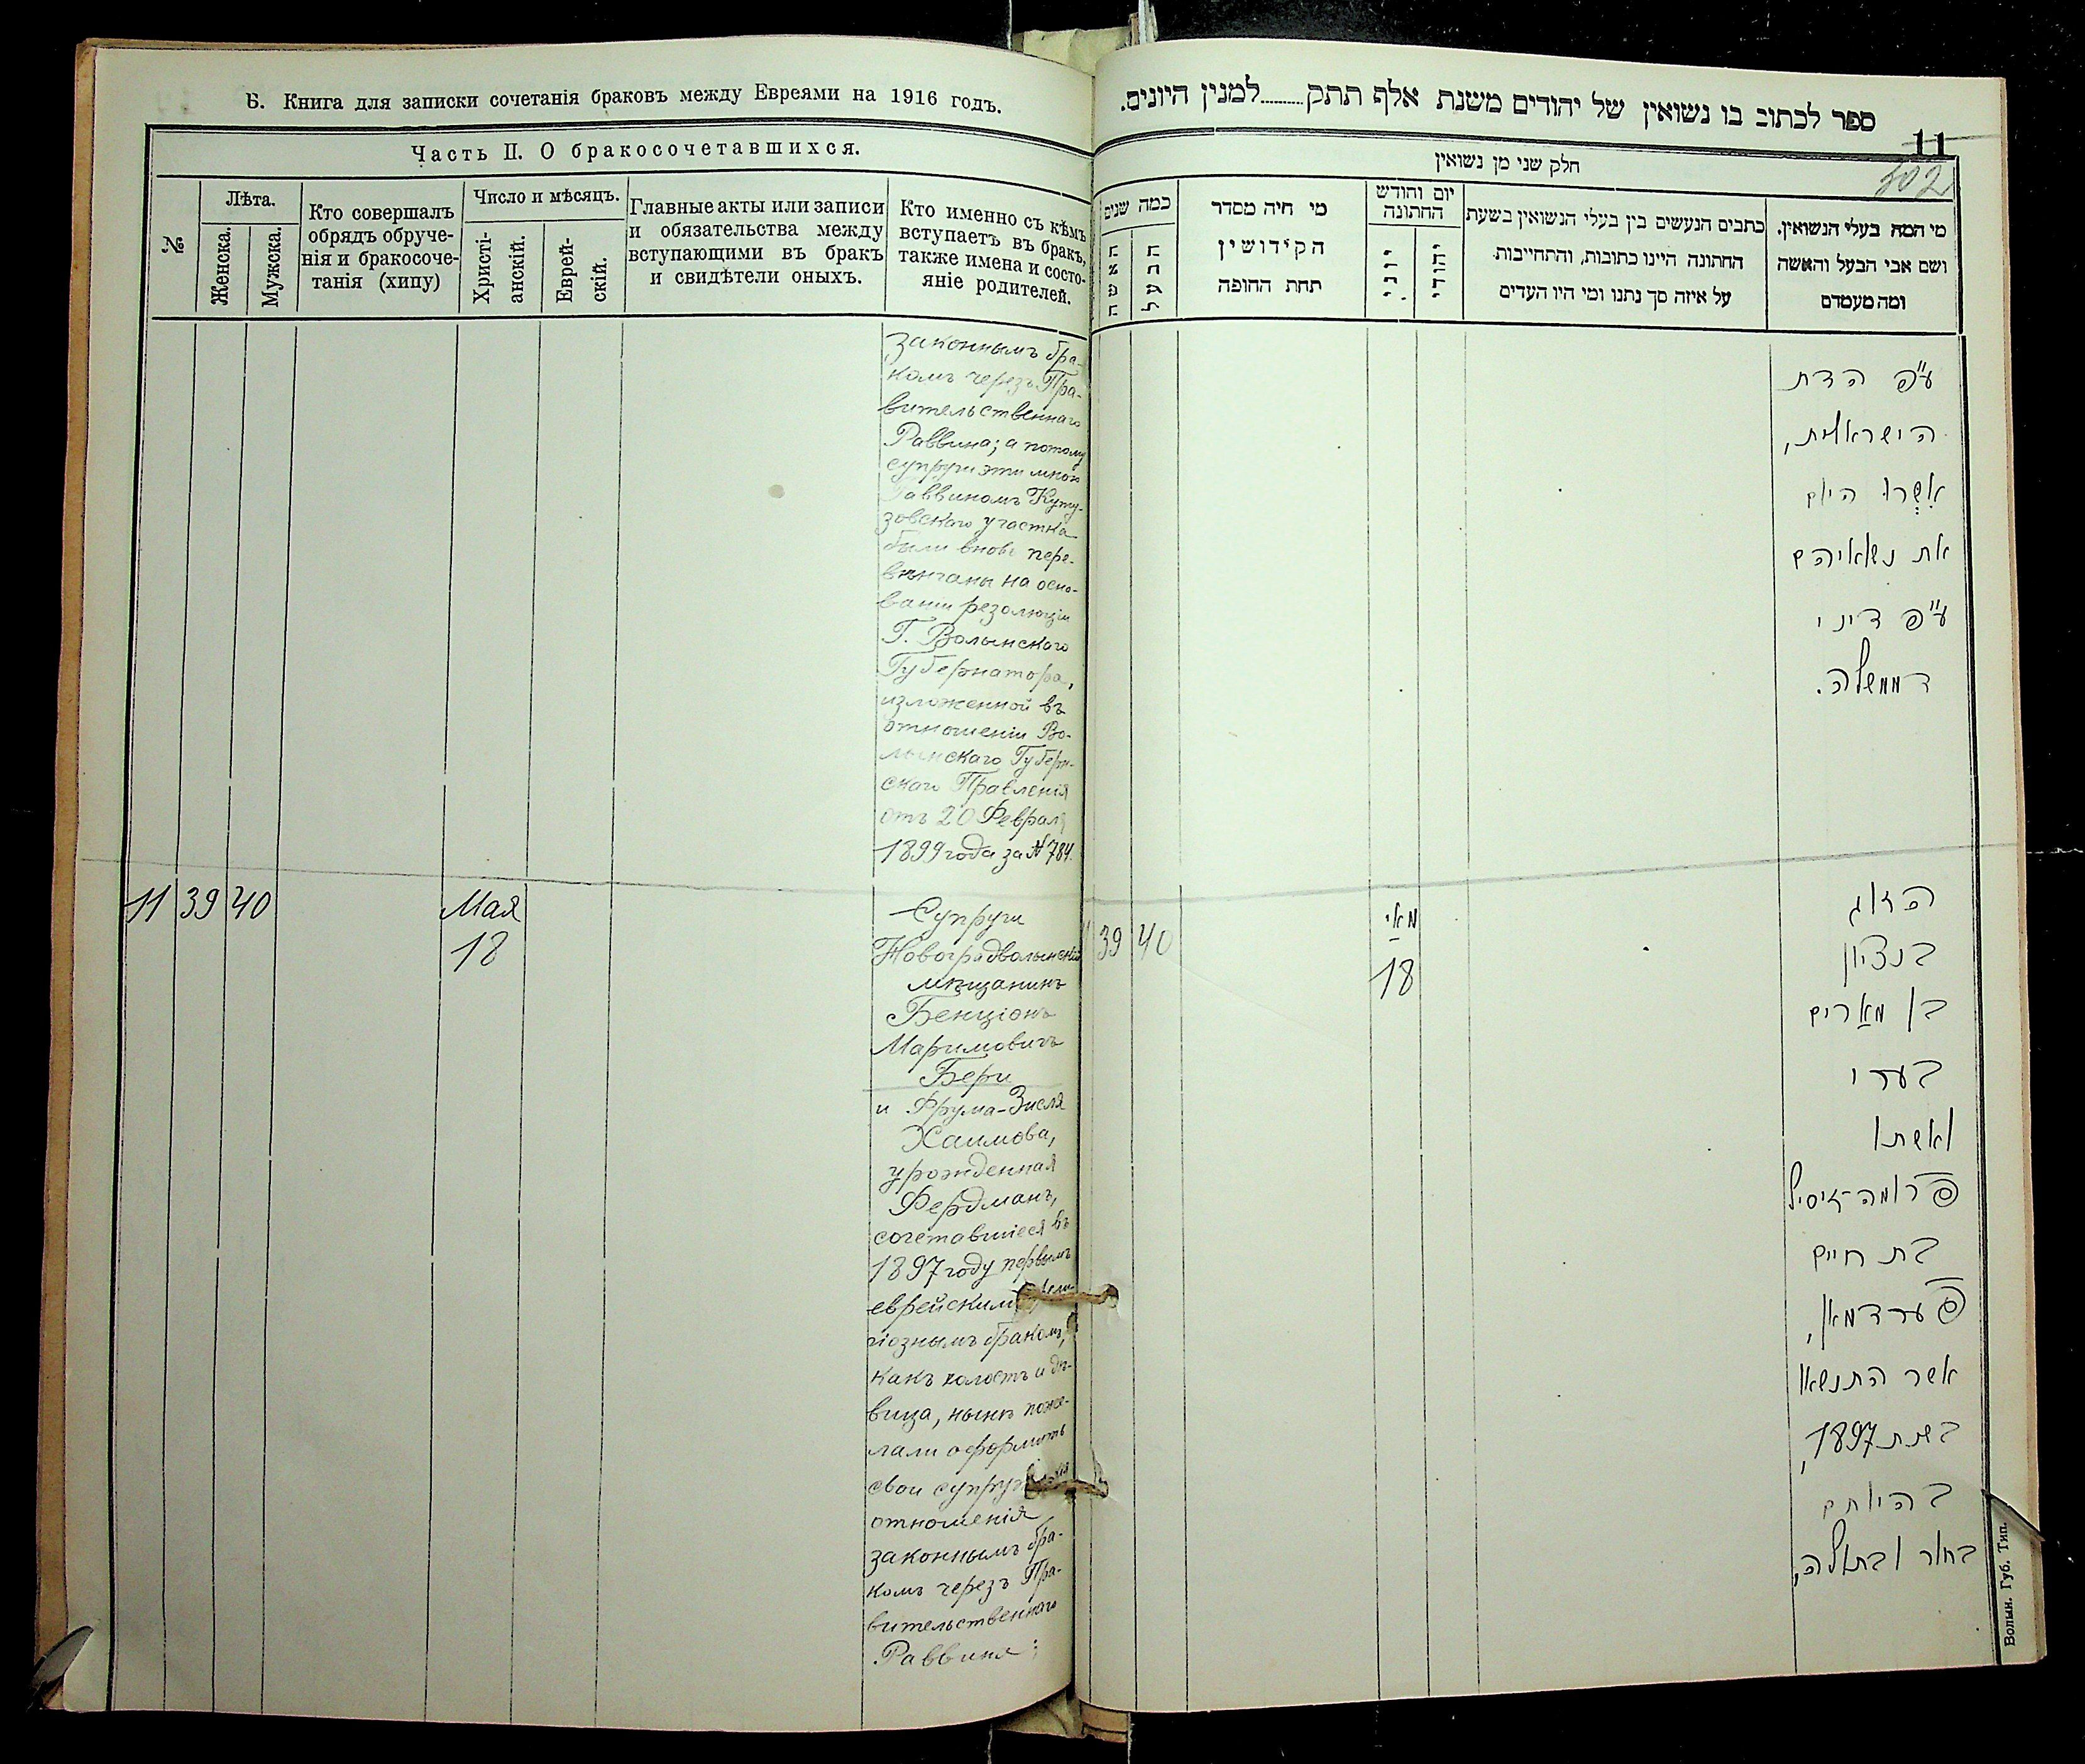 Б. Книга для записки сочетанія браковъ между Евреями на 1916 годъ.
Часть II. О бракосочетавшихся.
№
Лѣта.
Женска.
Мужска.
Кто совершалъ
обрядъ обруче-
нія и бракосоче-
танія (хипу)
Число и мѣсяцъ.
Христі-
анскій.
Еврей-
скій.
Главные акты или записи
и обязательства между
вступающими въ бракъ
и свидѣтели оныхъ.
Кто именно съ кѣмъ
вступаетъ въ бракъ,
также имена и состо-
яніе родителей.
законнымъ бра-
комъ черезъ Пра-
вительственнаго
Раввина; а потому
супруги эти мною
Раввиномъ Куту-
зовскаго участка
были вновь пере-
вѣнчаны на осно-
ваніи резолюціи
Г. Волынскаго
Губернатора,
изложенной въ
отношеніи Во-
лынскаго Губерн-
скаго Правленія
отъ 20 Февраля
1899 года за № 784.
11 39 40
Мая
18
Супруги
Новоградволынскій
мѣщанинъ
Бенціонъ
Маримовичъ
Бери
и Фрума-Зисля
Хаимова,
урожденная
Фердманъ,
сочетавшіеся въ
1897 году первымъ
еврейскимъ рели-
гіознымъ бракомъ,
какъ холостъ и дѣ-
вица, нынѣ поже-
лали оформить
свои
отношенія
законнымъ бра-
комъ черезъ Пра-
вительственнаго
Раввина;
ספר לכתוב בו נשואין של יהודים משנת אלף תתק.........למנין היונים.
11
502
חלק שני מן נשואין
כמה שנים
האשה
הבעל
מי היה מסדר
הקידושין
תחת החופה
יום וחודש
החתונה
יוני
יהודי
כתבים הנעשים בין בעלי הנשואין בשעת
החתונה היינו כתובות, והתחייבות
על איזה סך נתנו ומי היו העדים
מי המה בעלי הנשואין.
ושם אבי הבעל והאשה
ומה מעמדם
ע"פ הדת
הישראלית,
אשרו היום
את נשואיהם
ע"פ דיני
דממשלה.
39 40
מאי
18
הזוג
בנציון
בן מארים
בערי
ואשתו
פרומה-זיסיל
בת חיים
פערדמאן,
אשר התנשאו
בשנת 1897,
בהיותם
בחור ובתולה,
Волын. Губ. Тип.